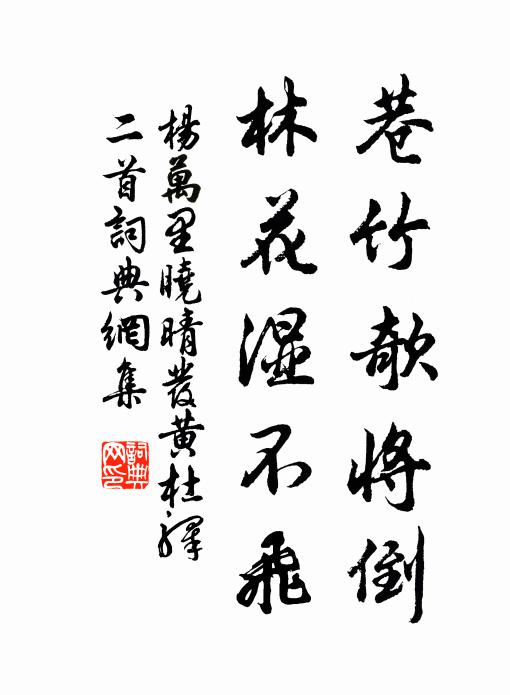 巷竹欹将倒
林花湿不飛
楊萬里曉晴發黄杜驛
二首詞典網集
詞典网印